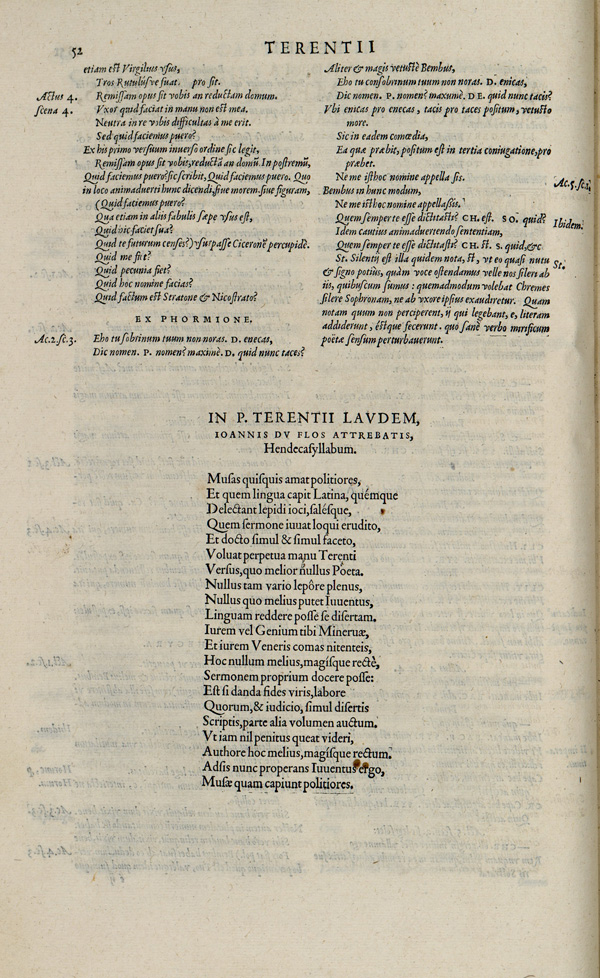 52
TERENTII
etiam est Virgilius vsus,
Tros Rutulusve fuat. pro sit.
Actus 4.
Remissam opus sit vobis an reductam domum.
scena 4.
Vxor quid faciat in manu non est mea.
Neutra in re vobis difficultas à me erit.
Sed quid faciemus puero?
Ex his primo versuum inuerso ordine sic legit,
Remissam opus sit vobis, reductā an domū. In postremū,
Quid faciemus puero? sic scribit, Quid faciemus puero. Quo
in loco animaduerti hunc dicendi, siue morem, siue figuram,
(Quid faciemus puero?
Qua etiam in aliis fabulis sæpe vsus est,
Quid hic faciet sua?
Quid te futurum censes?) vsurpasse Ciceronē percupidè.
Quid me fiet?
Quid pecunia fiet?
Quid hoc nomine facias?
Quid factum est Stratone & Nicostrato?
EX PHORMIONE.
Ac.2.sc.3.
Eho tu sobrinum tuum non noras. D. enecas,
Dic nomen. P. nomen? maximè. D. quid nunc taces?
Aliter & magis vetustè Bembus,
Eho tu consobrinum tuum non noras. D. enicas,
Dic nomen. P. nomen? maxumè. DE. quid nunc tacis?
Vbi enicas pro enecas, tacis pro taces positum, vetusto
more.
Sic in eadem comœdia,
Ea quæ præbit, positum est in tertia coniugatione, pro
præbet.
Ne me isthoc nomine appella sis.
Ac.5.sc.1.
Bembus in hunc modum,
Ne me istHoc nomine appellassis.
Quem semper te esse dictitasti? CH. est. SO. quid?
Ibidem.
Idem cautius animaduertendo sententiam,
Quem semper te esse dictitasti? CH. St. S. quid, &c
St. Silentij est illa quidem nota, st, vt eo quasi nutu
St.
& signo potius, quàm voce ostendamus velle nos sileri ab
iis, quibuscum sumus: quemadmodum volebat Chremes
silere Sophronam, ne ab vxore ipsius exaudiretur. Quam
notam quum non perciperent, ij qui legebant, e, literam
addiderunt, éstque fecerunt. quo sanè verbo mirificum
poëtæ sensum perturbauerunt.
IN P. TERENTII LAVDEM,
IOANNIS DV FLOS ATTREBATIS,
Hendecasyllabum.
Musas quisquis amat politiores,
Et quem lingua capit Latina, quémque
Delectant lepidi ioci, salésque,
Quem sermone iuuat loqui erudito,
Et docto simul & simul faceto,
Voluat perpetua manu Terenti
Versus, quo melior nullus Poëta.
Nullus tam vario lepôre plenus,
Nullus quo melius putet Iuuentus,
Linguam reddere posse se disertam.
Iurem vel Genium tibi Mineruæ,
Et iurem Veneris comas nitenteis,
Hoc nullum melius, magísque rectè,
Sermonem proprium docere posse:
Est si danda fides viris, labore
Quorum, & iudicio, simul disertis
Scriptis, parte alia volumen auctum.
Vt iam nil penitus queat videri,
Authore hoc melius, magísque rectum.
Adsis nunc properans Iuuentus ergo,
Musæ quam capiunt politiores.